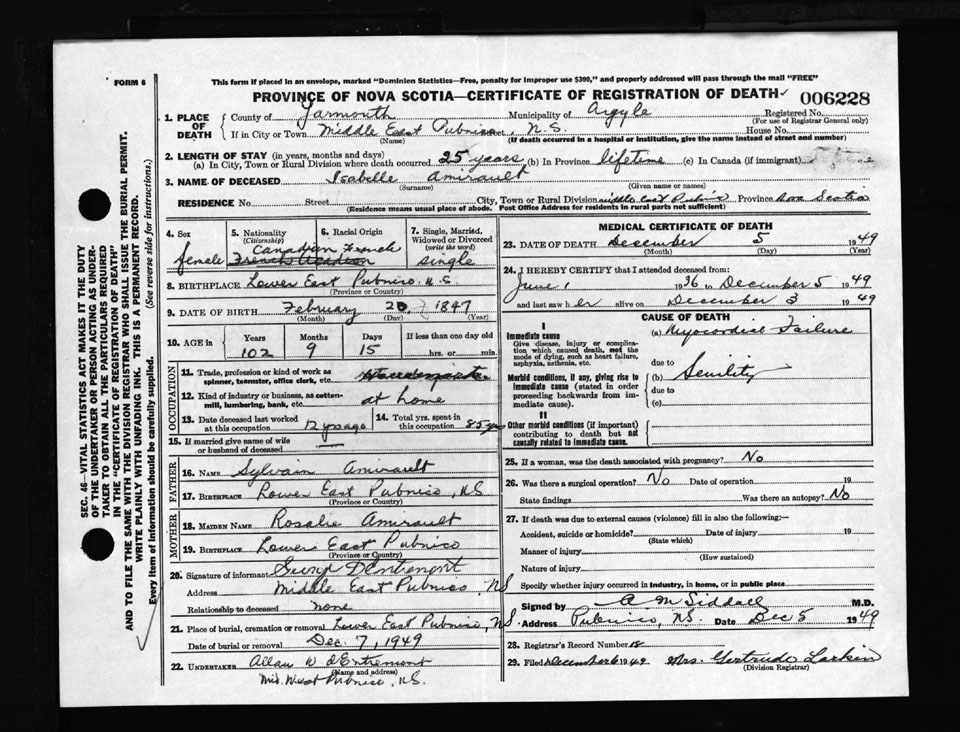 FORM 6
This form if placed in an envelope, marked "Dominion Statistics—Free, penalty for improper use $300," and properly addressed will pass through the mail "FREE"
PROVINCE OF NOVA SCOTIA—CERTIFICATE OF REGISTRATION OF DEATH
006228
SEC. 46—VITAL STATISTICS ACT MAKES IT THE DUTY
OF THE UNDERTAKER OR PERSON ACTING AS UNDER-
TAKER TO OBTAIN ALL THE PARTICULARS REQUIRED
IN THE "CERTIFICATE OF REGISTRATION OF DEATH"
AND TO FILE THE SAME WITH THE DIVISION REGISTRAR WHO SHALL ISSUE THE BURIAL PERMIT.
WRITE PLAINLY WITH UNFADING INK. THIS IS A PERMANENT RECORD.
Every item of Information should be carefully supplied. (See reverse side for instructions.)
1. PLACE OF DEATH
County of Yarmouth Municipality of Argyle Registered No.
(For use of Registrar General only)
If in City or Town Middle East Pubnico, N.S. House No.
(Name) (If death occurred in a hospital or institution, give the name instead of street and number)
2. LENGTH OF STAY (in years, months and days)
(a) In City, Town or Rural Division where death occurred 25 years (b) In Province lifetime (c) In Canada (if immigrant)
3. NAME OF DECEASED Isabelle Amirault
(Surname) (Given name or names)
RESIDENCE No. Street City, Town or Rural Division middle east Pubnico Province Nova Scotia
(Residence means usual place of abode. Post Office Address for residents in rural parts not sufficient)
4. Sex female
5. Nationality (Citizenship) Canadian
6. Racial Origin French
French Acadian
7. Single, Married, Widowed or Divorced (write the word) single
8. BIRTHPLACE Lower East Pubnico, N.S.
(Province or Country)
9. DATE OF BIRTH February 20 1847
(Month) (Day) (Year)
10. AGE in Years Months Days If less than one day old
102 9 15 hrs. or min.
OCCUPATION
11. Trade, profession or kind of work as spinner, teamster, office clerk, etc.
12. Kind of industry or business, as cotton-mill, lumbering, bank, etc. at home
13. Date deceased last worked at this occupation 12 yrs ago
14. Total yrs. spent in this occupation 85 yrs
15. If married give name of wife or husband
FATHER
16. NAME Sylvain Amirault
17. BIRTHPLACE Lower East Pubnico, NS
(Province or Country)
MOTHER
18. MAIDEN NAME Rosalie Amirault
19. BIRTHPLACE Lower East Pubnico
(Province or Country)
20. Signature of informant D'Entremont
Address Middle East Pubnico, NS
Relationship to deceased none
21. Place of burial, cremation or removal Lower East Pubnico, NS
Date of burial or removal Dec. 7, 1949
22. UNDERTAKER Allan W d'Entremont
(Name and address)
Mid. West Pubnico, N.S.
MEDICAL CERTIFICATE OF DEATH
23. DATE OF DEATH December 5 1949
(Month) (Day) (Year)
24. I HEREBY CERTIFY that I attended deceased from:
June 1 1936 to December 5 1949
and last saw her alive on December 3 1949
CAUSE OF DEATH
I
Immediate cause
Give disease, injury or complication which caused death, not the mode of dying, such as heart failure, asphyxia, asthenia, etc.
(a) Myocardial Failure
due to
Morbid conditions, if any, giving rise to immediate cause (stated in order proceeding backwards from immediate cause).
(b) Senility
due to
(c)
II
Other morbid conditions (if important) contributing to death but not causally related to immediate cause.
25. If a woman, was the death associated with pregnancy? No
26. Was there a surgical operation? No Date of operation 19
State findings Was there an autopsy? No
27. If death was due to external causes (violence) fill in also the following:—
Accident, suicide or homicide? Date of injury 19
(State which)
Manner of injury
(How sustained)
Nature of injury
Specify whether injury occurred in industry, in home, or in public place
Signed by A M Siddall M.D.
Address Pubnico, NS. Date Dec 5 1949
28. Registrar's Record Number 18
29. Filed December 6 1949 Mrs. Gertrude Larkin
(Division Registrar)